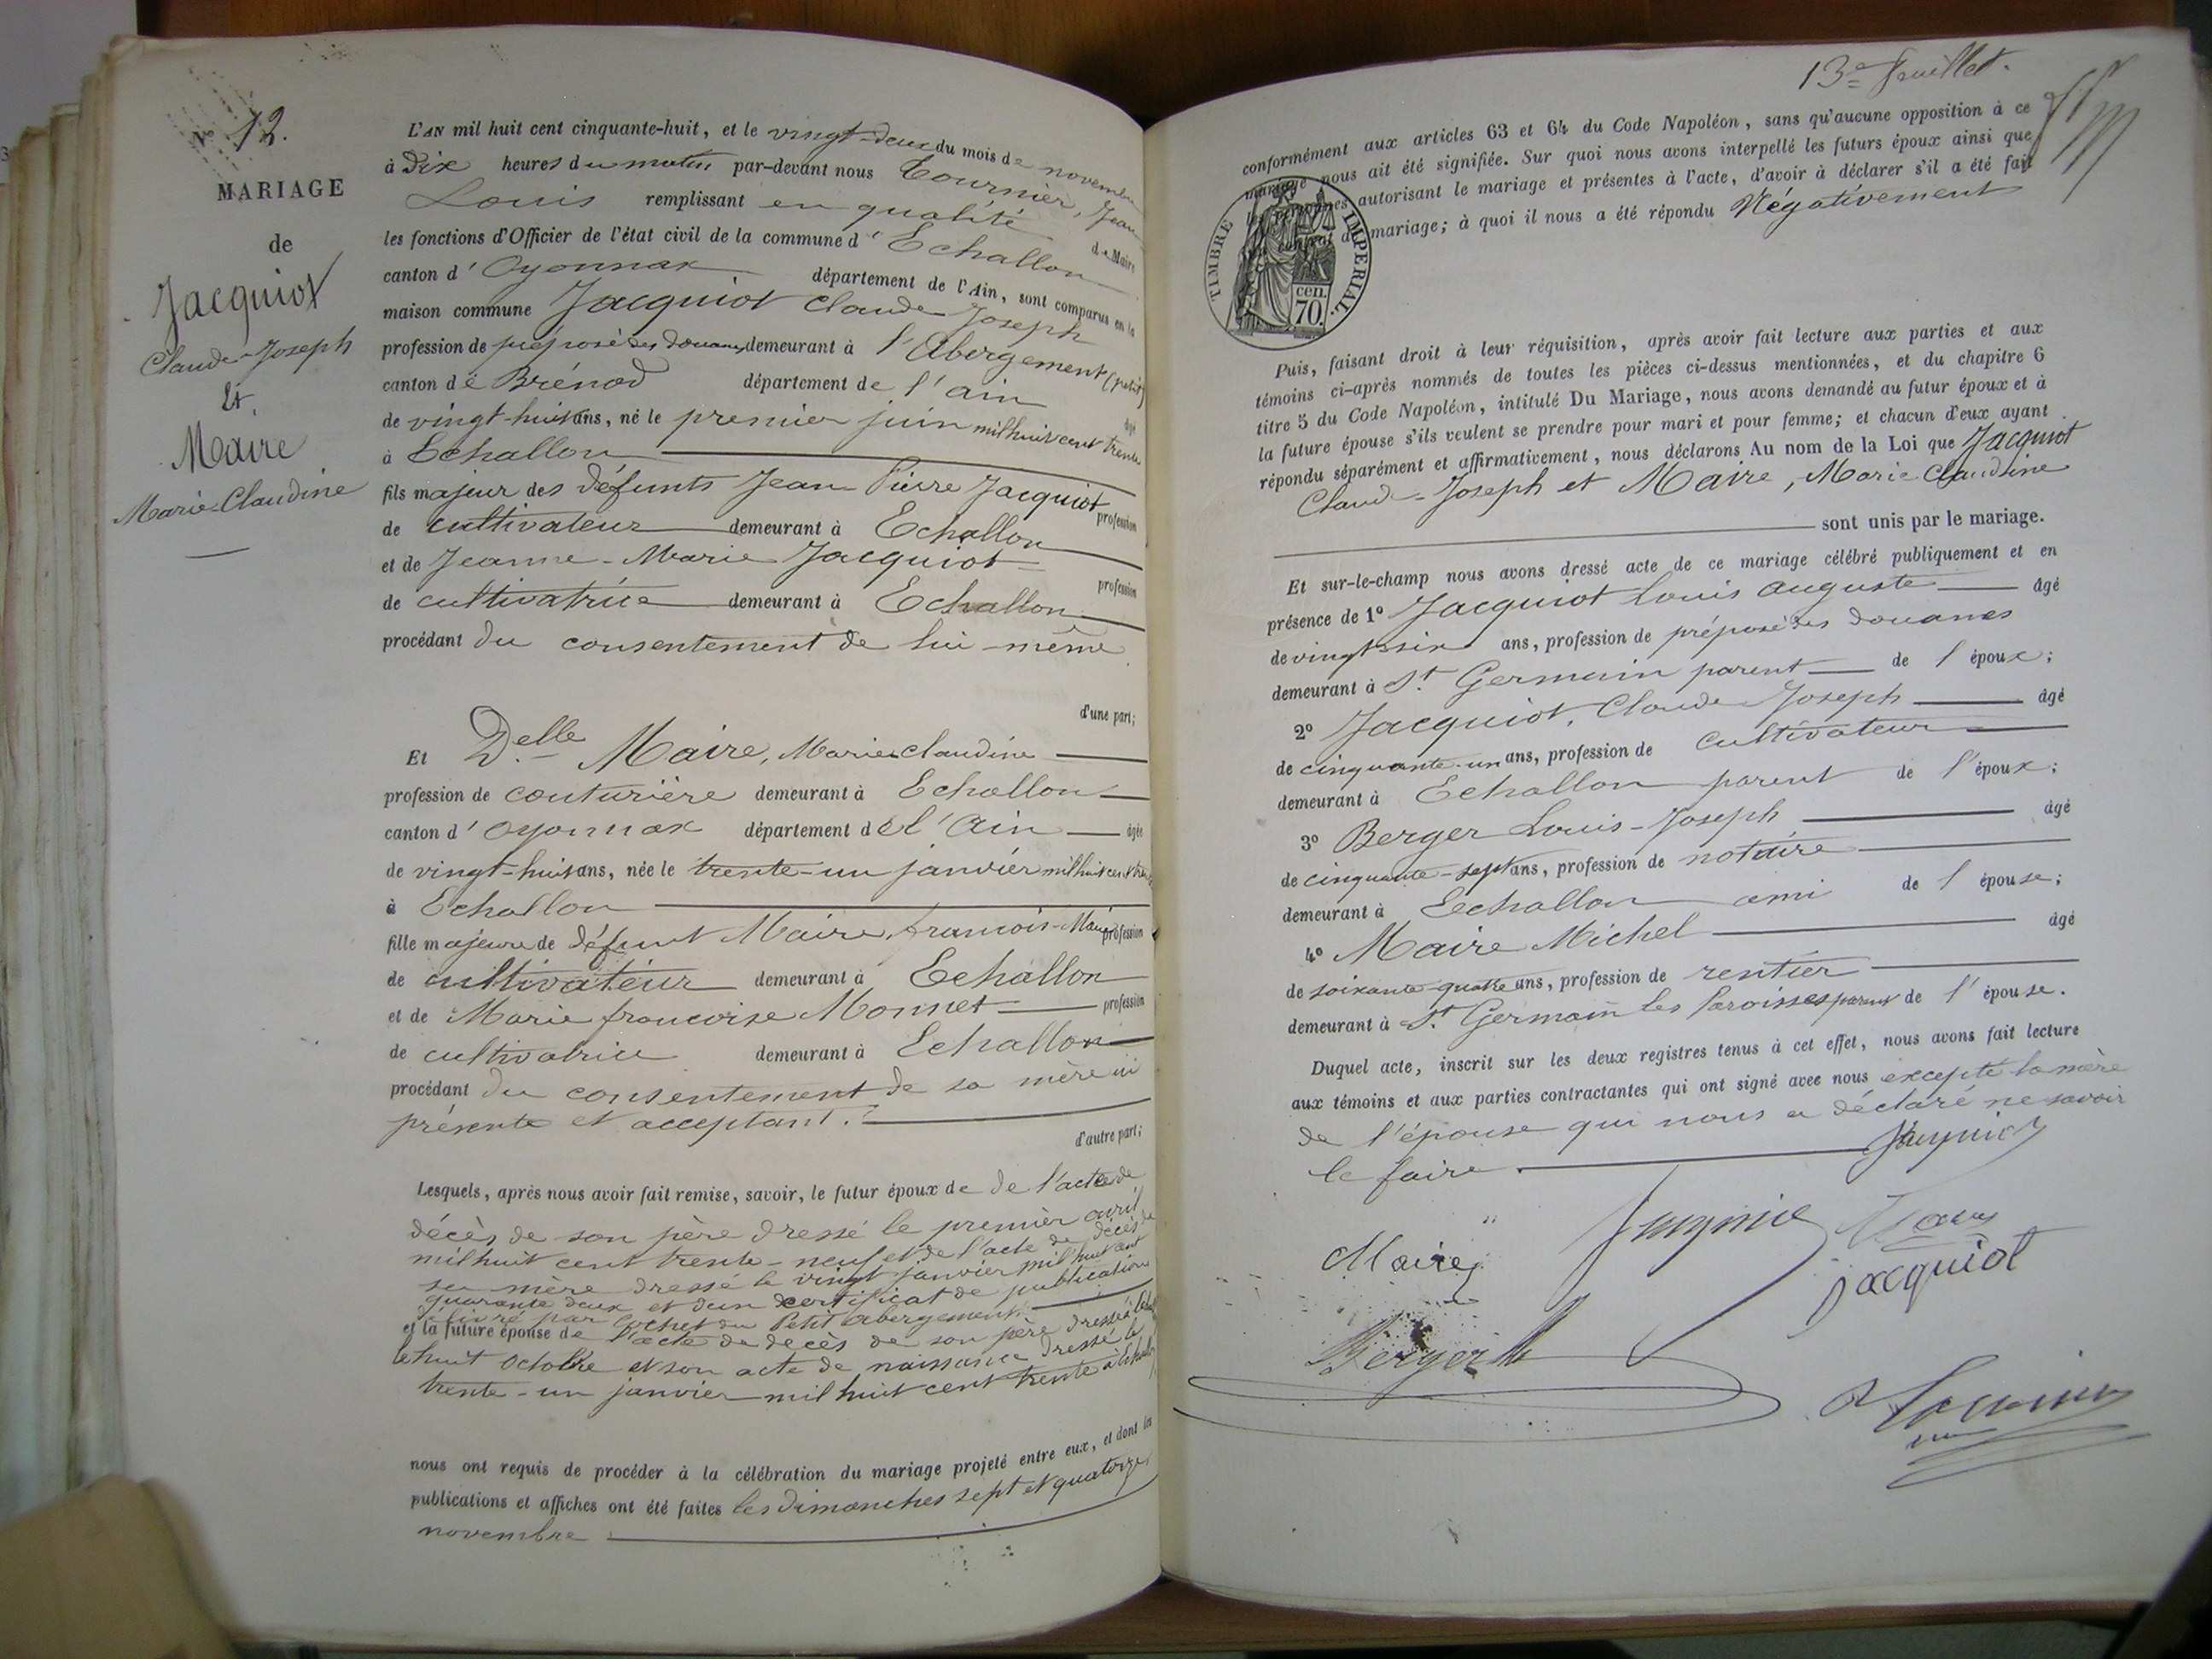 N° 12.
MARIAGE
de
Jacquiot
Claude-Joseph
Et
Maire
Marie-Claudine
L'AN mil huit cent cinquante-huit, et le vingt-deux du mois de novembre
à Dix heures du matin par-devant nous Tournier, Jean
Louis remplissant en qualité de Maire
les fonctions d'Officier de l'état civil de la commune d' Echallon
canton d' Oyonnax département de l'Ain, sont comparus en la
maison commune Jacquiot Claude Joseph
profession de préposé des douanes demeurant à l'Abergement (petit)
canton de Brénod département de l'ain âgé
de vingt-huit ans, né le premier juin mil huit cent trente
à Echallon
fils majeur des défunts Jean Pierre Jacquiot profession
de cultivateur demeurant à Echallon
et de Jeanne-Marie Jacquiot profession
de cultivatrice demeurant à Echallon
procédant du consentement de lui-même
d'une part;
Et Delle Maire, Marie claudine
profession de couturière demeurant à Echallon
canton d' Oyonnax département de l'Ain âgée
de vingt-huit ans, née le trente-un janvier mil huit cent trente
à Echallon
fille majeure de défunt Maire, francois-Marie profession
de cultivateur demeurant à Echallon
et de Marie francoise Monnet profession
de cultivatrice demeurant à Echallon
procédant du consentement de sa mère ici
présente et acceptant.
d'autre part;
Lesquels, après nous avoir fait remise, savoir, le futur époux de de l'acte de
décès de son père dressé le premier avril
mil huit cent trente-neuf et de l'acte de décès de
sa mère dressé le vingt janvier mil huit cent
quarante deux et d'un certificat de publication
délivré par Cochet du Petit abergement.
et la future épouse de l'acte de décès de son père dressé à
le huit Octobre et son acte de naissance dressé le
trente-un janvier mil huit cent trente à Echallon
nous ont requis de procéder à la célébration du mariage projeté entre eux, et dont les
publications et affiches ont été faites les dimanches sept et quatorze
novembre
13e feuillet.
conformément aux articles 63 et 64 du Code Napoléon, sans qu'aucune opposition à ce
mariage nous ait été signifiée. Sur quoi nous avons interpellé les futurs époux ainsi que
les personnes autorisant le mariage et présentes à l'acte, d'avoir à déclarer s'il a été fait
contrat de mariage; à quoi il nous a été répondu Négativement
TIMBRE IMPERIAL.
cen.
70.
Puis, faisant droit à leur réquisition, après avoir fait lecture aux parties et aux
témoins ci-après nommés de toutes les pièces ci-dessus mentionnées, et du chapitre 6
titre 5 du Code Napoléon, intitulé Du Mariage, nous avons demandé au futur époux et à
la future épouse s'ils veulent se prendre pour mari et pour femme; et chacun d'eux ayant
répondu séparément et affirmativement, nous déclarons Au nom de la Loi que Jacquiot
Claude-Joseph et Maire, Marie Claudine
sont unis par le mariage.
Et sur-le-champ nous avons dressé acte de ce mariage célébré publiquement et en
présence de 1° Jacquiot Louis auguste âgé
de vingt-six ans, profession de préposé des douanes
demeurant à St Germain parent de l'époux;
2° Jacquiot, Claude Joseph âgé
de cinquante-un ans, profession de cultivateur
demeurant à Echallon parent de l'époux;
3° Berger Louis-Joseph âgé
de cinquante-sept ans, profession de notaire
demeurant à Echallon ami de l'épouse;
4° Maire Michel âgé
de soixante-quatre ans, profession de rentier
demeurant à St Germain les Paroisses parent de l'épouse.
Duquel acte, inscrit sur les deux registres tenus à cet effet, nous avons fait lecture
aux témoins et aux parties contractantes qui ont signé avec nous excepté la mère
de l'épouse qui nous a déclaré ne savoir
le faire.
Jacquiot
Maire
Jacquiot
Berger